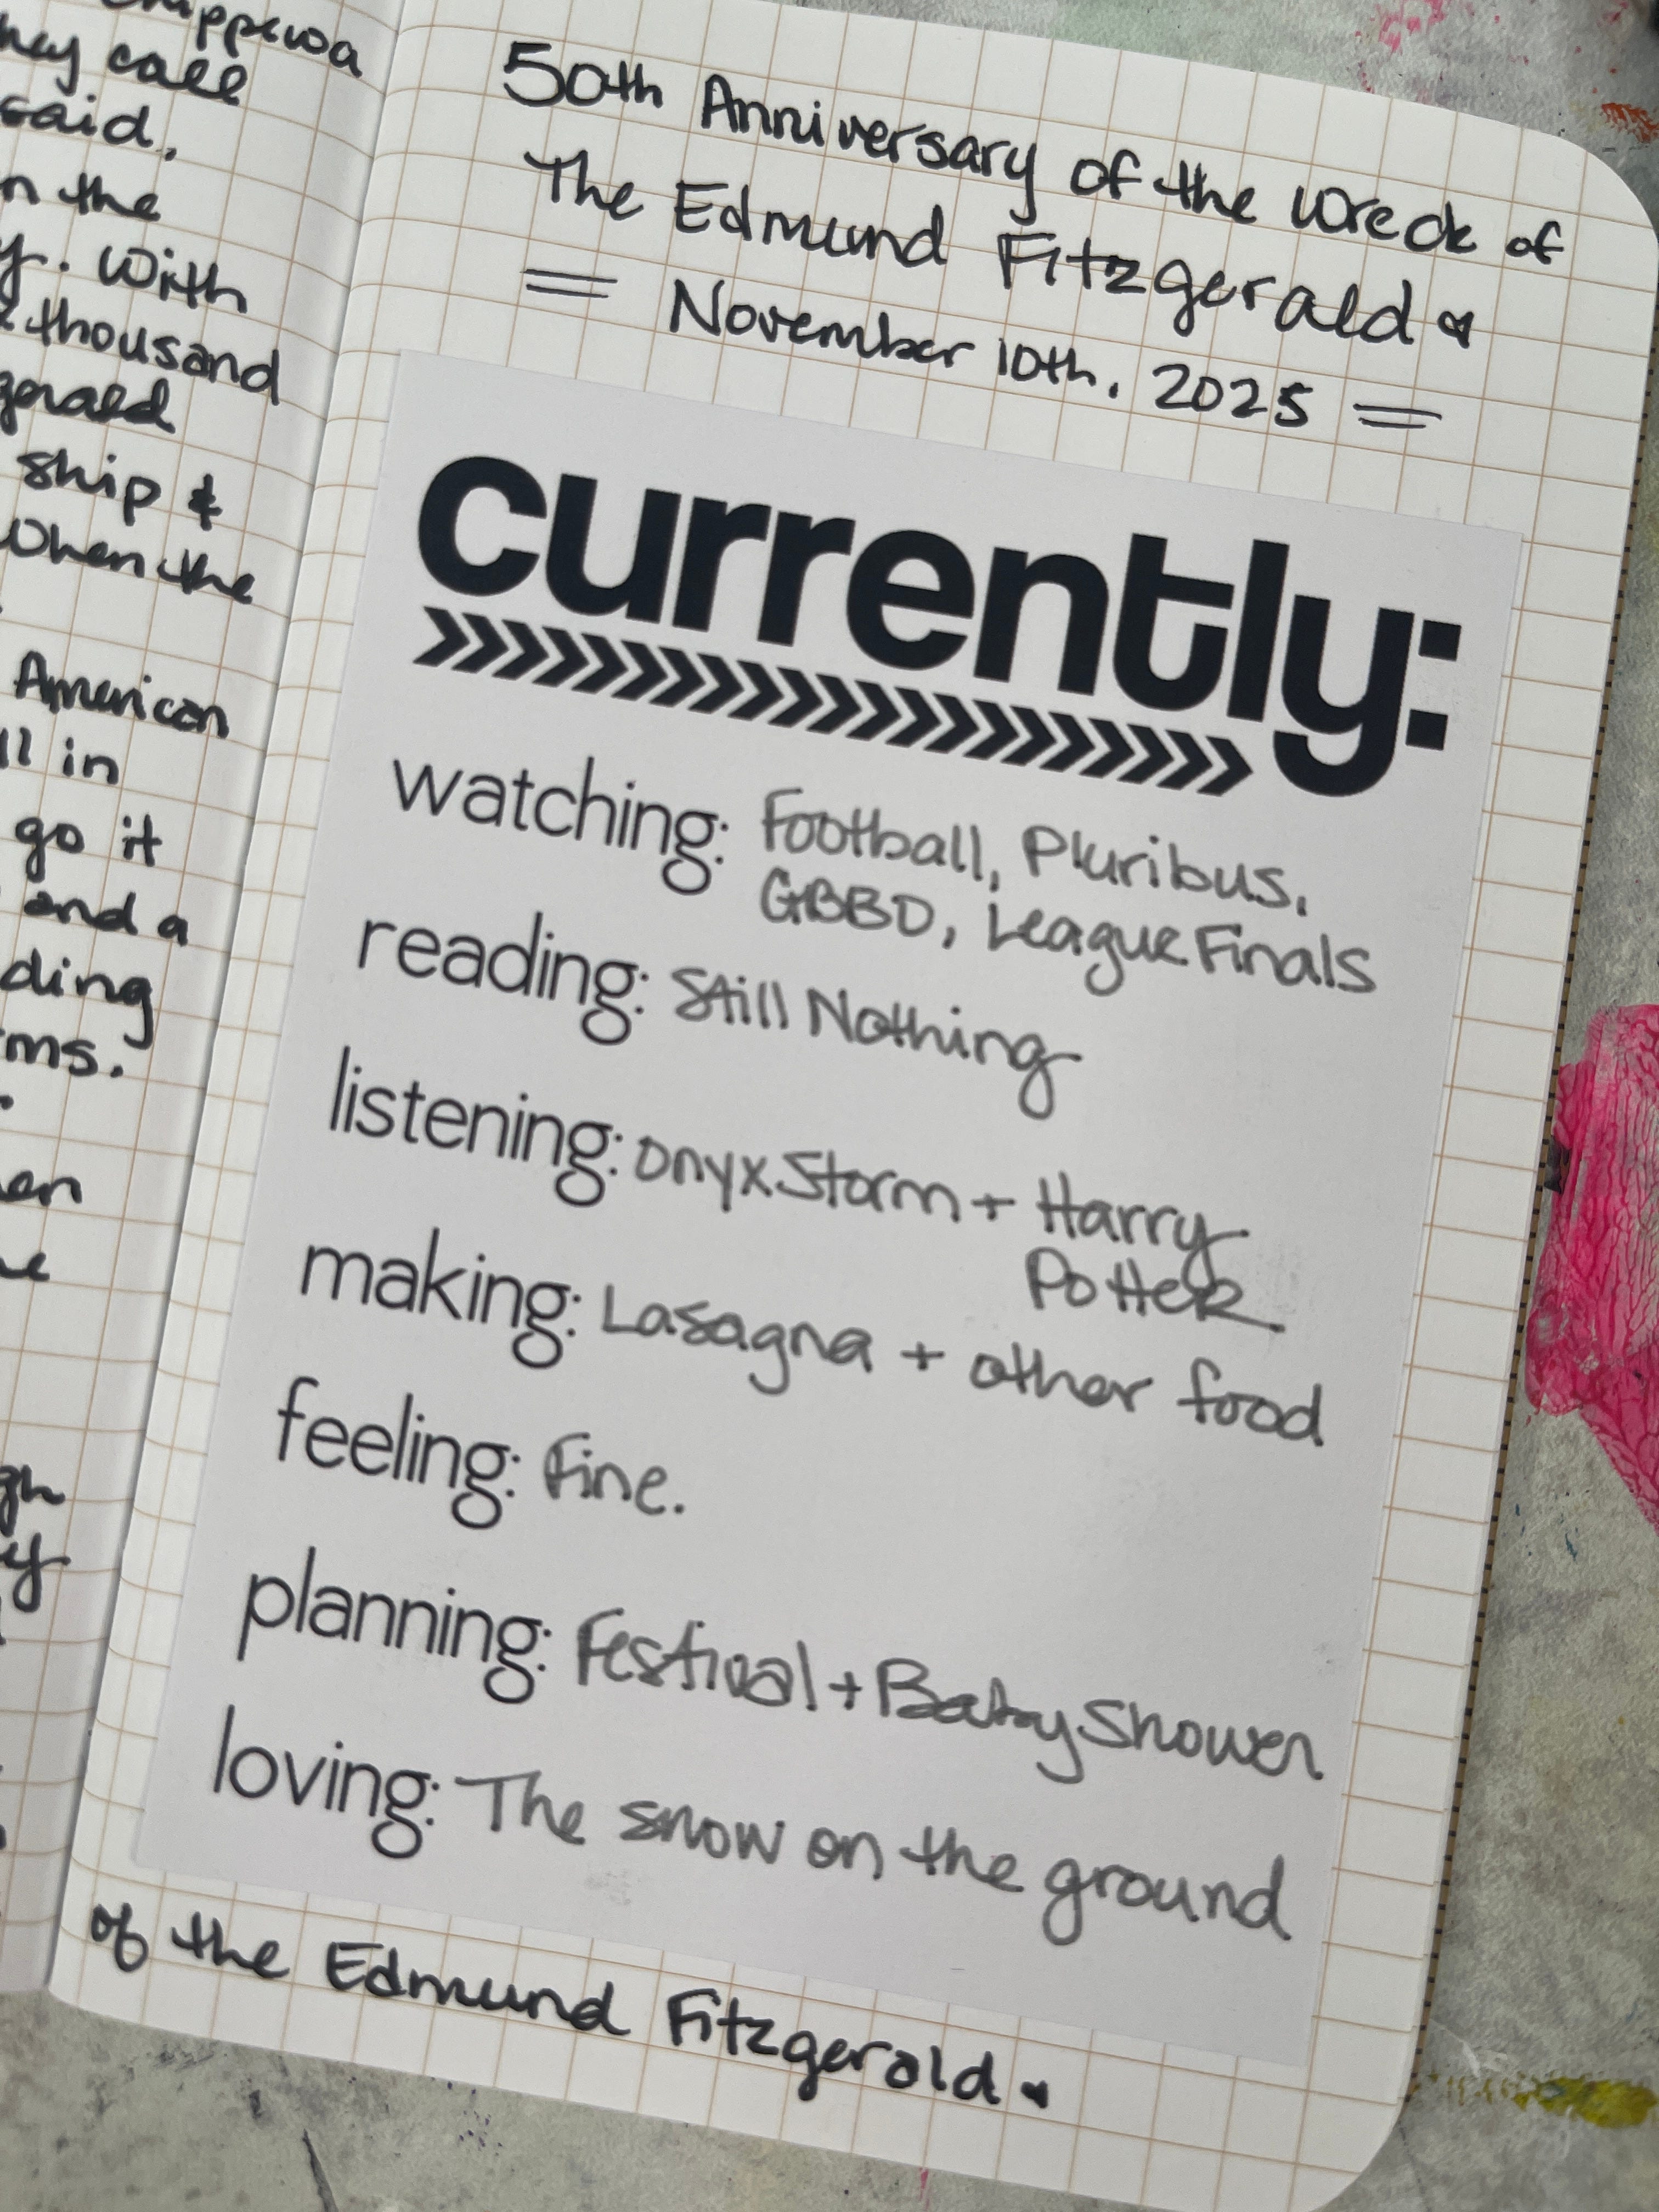 ppewa
call
said.
the
With
thousand
ship &
When the
American
in
go it
and a
50th Anniversary of the Wreck of
The Edmund Fitzgerald
= November 10th, 2025 =
currently:
>>>>>>>>>>>>>>>>>>>>>
watching: Football, Pluribus,
GBBO, League Finals
reading: Still Nothing
listening: Onyx Storm + Harry
Potter
making: Lasagna + other food
feeling: Fine.
planning: Festival + Baby Shower
loving: The snow on the ground
of the Edmund Fitzgerald